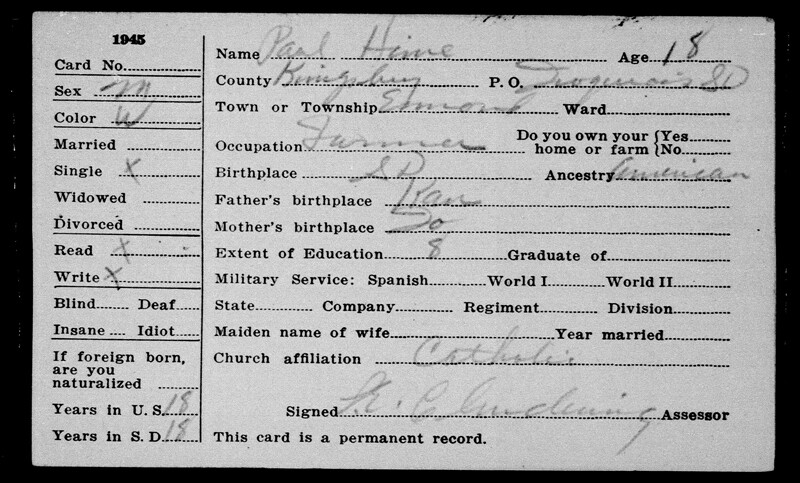 1945
Card No.
Sex M
Color W
Married
Single X
Widowed
Divorced
Read X
Write X
Blind Deaf
Insane Idiot
If foreign born,
are you
naturalized
Years in U. S. 18
Years in S. D. 18
Name Paul Hime Age 18
County Kingsbury P. O. Iroquois SD
Town or Township Ward
Occupation Farmer Do you own your { Yes
home or farm { No
Birthplace SD Ancestry American
Father's birthplace Kan
Mother's birthplace
Extent of Education 8 Graduate of
Military Service: Spanish World I World II
State Company Regiment Division
Maiden name of wife Year married
Church affiliation Catholic
Signed Assessor
This card is a permanent record.